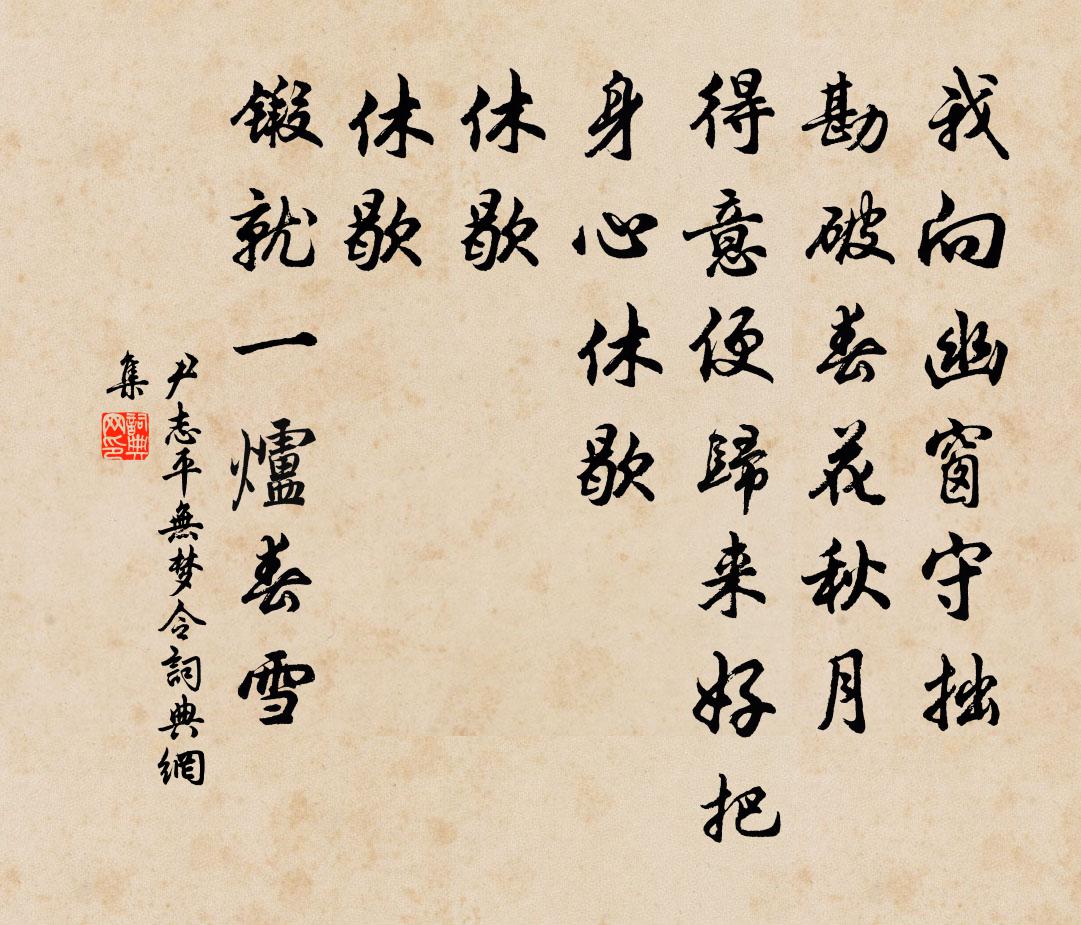 我向幽窗守拙
勘破春花秋月
得意便歸来好把
身心休歇
休歇
休歇
鍛就一爐春雪
尹志平無梦令詞典網
集
詞典网印